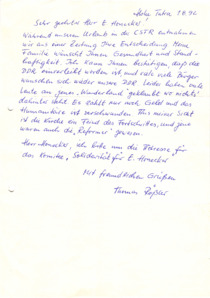 Hohe Tatra 1.8.92
Sehr geehrter Herr E. Honecker!
Während unseres Urlaub in der CSFR entnahmen
wir aus einer Zeitung Ihre Entscheidung. Meine
Familie wünscht Ihnen Gesundheit und Stand-
haftigkeit. Ich kann Ihnen bestätigen, daß die
DDR einverleibt worden ist, und viele Bürger
wünschen sich wieder unsere DDR. Leider haben viele
heute am jenen "Wunderland" geklebt wo nichts
dahinter steht. Es zählt nur noch Geld und das
Humanitäre ist verschwunden. Aus meiner Sicht
ist die Kirche ein Feind des Fortschrittes, und jene
waren auch die "Reformer" gewesen.
Herr Honecker, ich bitte um die Adresse für
das Komitee "Solidarität für E. Honecker"
Mit freundlichen Grüßen
Thomas